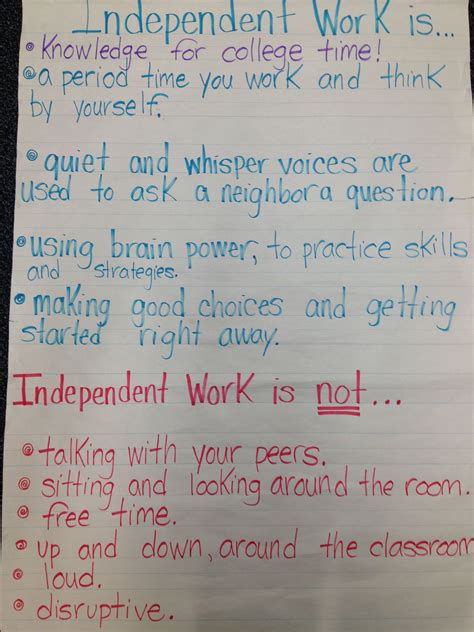 Independent Work is...
• Knowledge for college time!
• a period time you work and think
by yourself.
• quiet and whisper voices are
used to ask a neighbor a question.
• using brain power, to practice skills
and strategies.
• making good choices and getting
started right away.
Independent Work is not...
• talking with your peers.
• sitting and looking around the room.
• free time.
• up and down, around the classroom
• loud.
• disruptive.